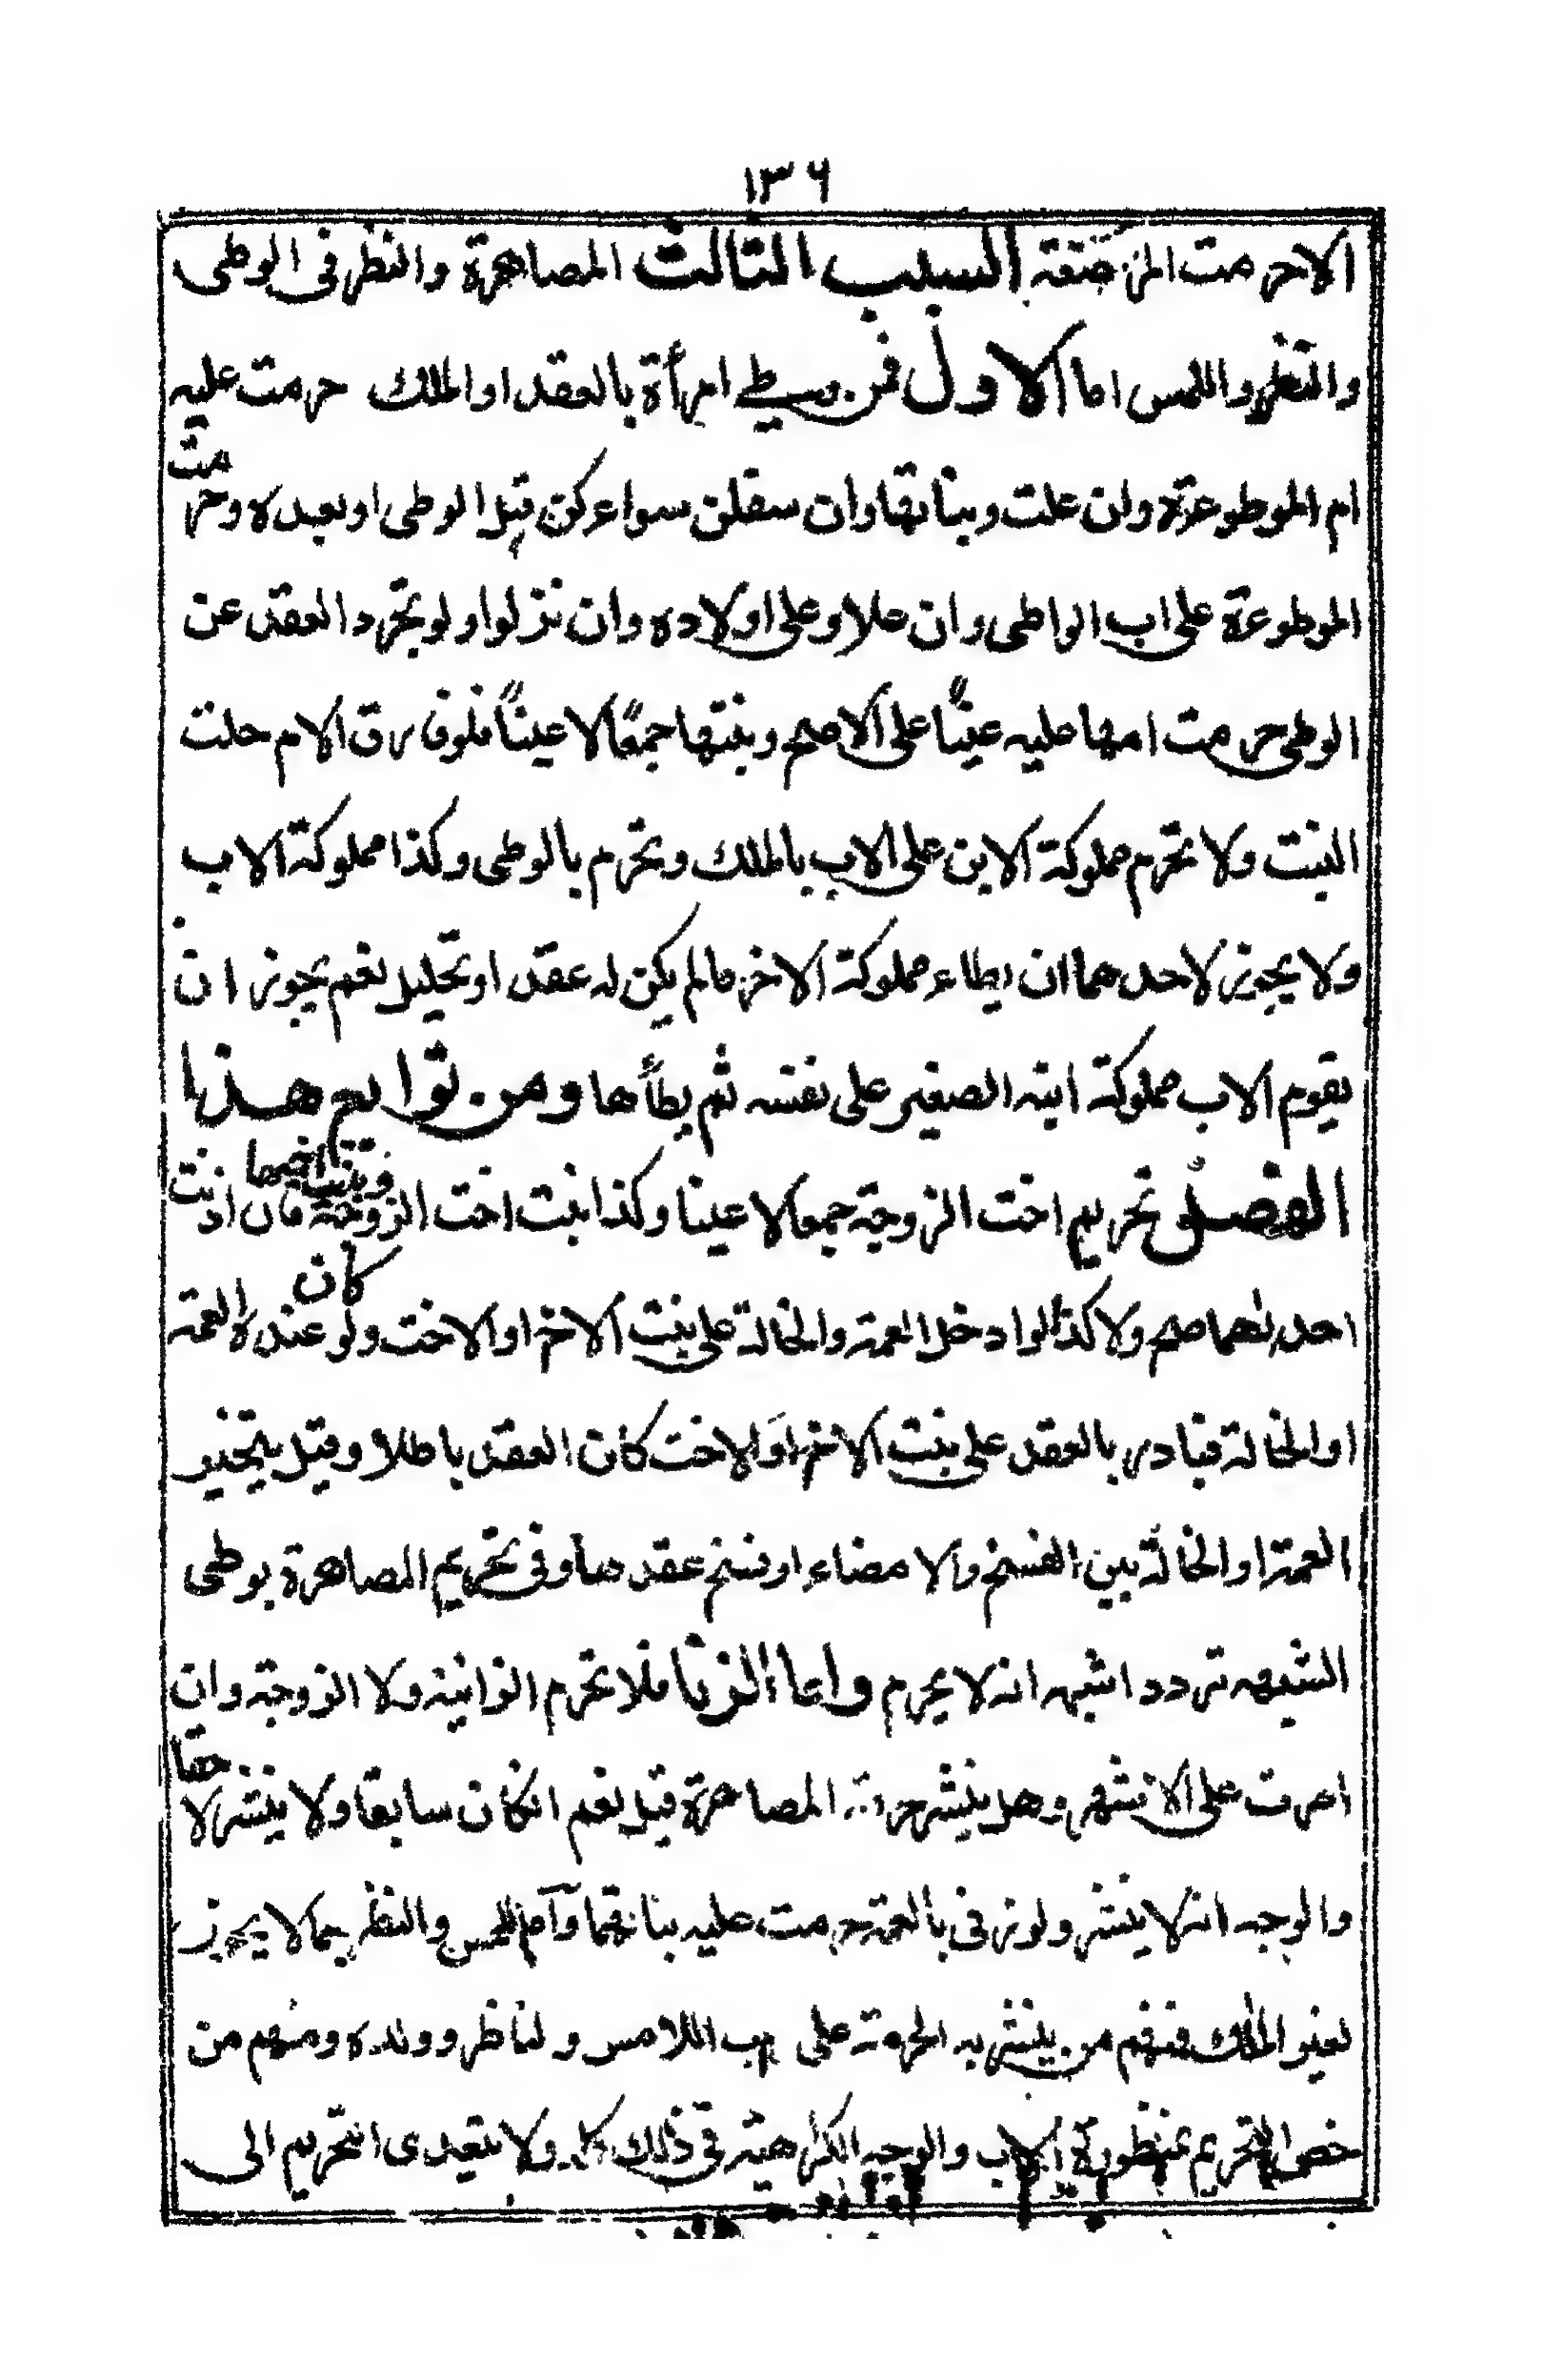 ١٣٦
الاحرمت المرتضعة السبب الثالث المصاهرة والنظر فى الوطى
والنظر واللمس اما الاول فمن وطئ امرأة بالعقد او الملك حرمت عليه
ام الموطوءة وان علت وبناتها وان سفلن سواء كن قبل الوطى او بعده وحرمت
الموطوءة على اب الواطى وان علا وعلى اولاده وان نزلوا ولو تجرد العقد عن
الوطى حرمت امها عليه عينًا على الاصح وبنتها جمعًا لا عينًا فلو فارق الام حلت
البنت ولا تحرم مملوكة الابن على الاب بالملك وتحرم بالوطى وكذا مملوكة الاب
ولا يجوز لاحدهما ان يطاء مملوكة الاخر مالم يكن له عقد او تحليل نعم يجوز ان
يقوم الاب مملوكة ابنه الصغير على نفسه ثم يطأها ومن توابع هذا
الفصل تحريم اخت الزوجة جمعا لا عينا وكذا بنت اخت الزوجة وبنت اخيها فان اذنت
احدٰهما صح ولا كذا لو ادخل العمة والخالة على بنت الاخ او الاخت ولو كان عنده العمة
او الخالة فبادر بالعقد على بنت الاخ او الاخت كان العقد باطلا وقيل يتخير
العمة او الخالة بين الفسخ والامضاء او فسخ عقدها وفى تحريم المصاهرة بوطى
الشبهه تردد اشبهه انه لا يحرم واما الزنا فلا تحرم الزانية ولا الزوجة وان
اصرت على الاشهر وهل ينشر حرمة المصاهرة قيل نعم انكان سابقا ولا ينشر لاحقا
والوجه انه لا ينشر ولو زنى بالعمة حرمت عليه بناتهما وآما اللمس والنظر بما لا يجوز
لغير المالك فمنهم من ينشر به الحرمة على اب اللامس والناظر وولده ومنهم من
خص التحريم بمنظورة الاب والوجه الكراهية فى ذلك كله ولا يتعدى التحريم الى